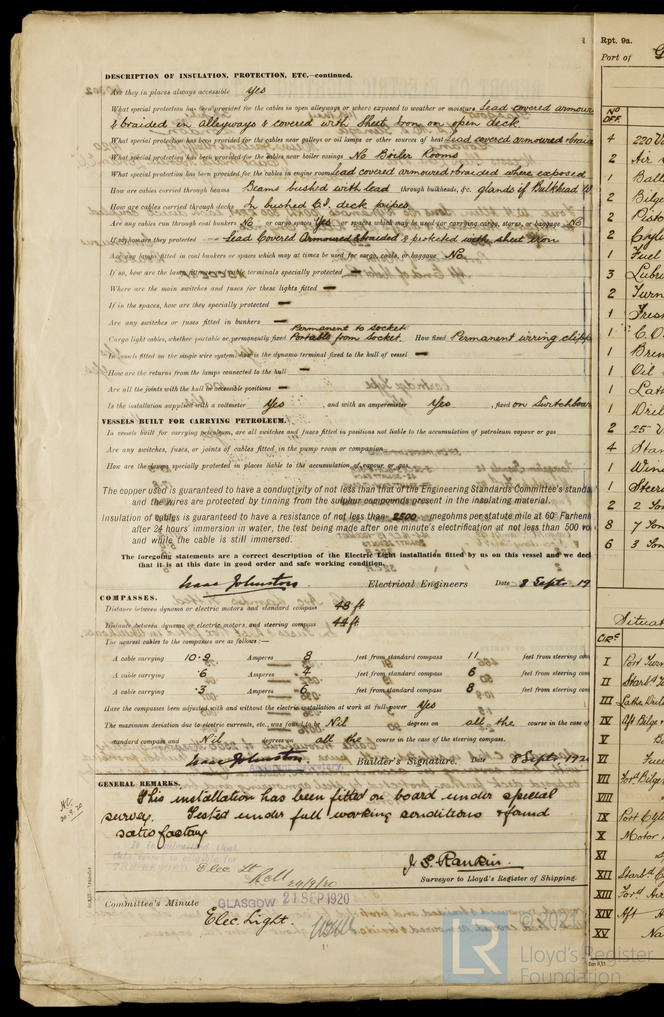 DESCRIPTION OF INSULATION, PROTECTION, ETC.—continued.
Are they in places always accessible yes
What special protection has been provided for the cables in open alleyways or where exposed to weather or moisture Lead covered armour
& braided in alleyways & covered with sheet Iron on open deck
What special protection has been provided for the cables near galleys or oil lamps or other sources of heat Lead covered armoured & braid
What special protection has been provided for the cables near boiler casings No Boiler Rooms
What special protection has been provided for the cables in engine room Lead covered armoured & braided where exposed
How are cables carried through beams Beams bushed with lead through bulkheads, &c. glands if Bulkhead W
How are cables carried through decks In bushed C.I. deck pipes
Are any cables run through coal bunkers No or cargo spaces Yes or spaces which may be used for carrying cargo, stores, or baggage No
If so, how are they protected Lead Covered Armoured & braided & protected with sheet iron
Are any lamps fitted in coal bunkers or spaces which may at times be used for cargo, coals, or baggage No
If so, how are the lamps and terminals specially protected —
Where are the main switches and fuses for these lights fitted —
If in the spaces, how are they specially protected —
Are any switches or fuses fitted in bunkers —
Permanent to socket
Cargo light cables, whether portable or permanently fixed Portable from Socket. How fixed Permanent wiring clipp
In vessels fitted on the single wire system, how is the dynamo terminal fixed to the hull of vessel —
How are the returns from the lamps connected to the hull —
Are all the joints with the hull in accessible positions —
Is the installation supplied with a voltmeter Yes , and with an amperemeter Yes , fixed on Switchboar
VESSELS BUILT FOR CARRYING PETROLEUM.
In vessels built for carrying petroleum, are all switches and fuses fitted in positions not liable to the accumulation of petroleum vapour or gas
Are any switches, fuses, or joints of cables fitted in the pump room or companion
How are the lamps specially protected in places liable to the accumulation of vapour or gas
The copper used is guaranteed to have a conductivity of not less than that of the Engineering Standards Committee's standa
and the wires are protected by tinning from the sulphur compounds present in the insulating material.
Insulation of cables is guaranteed to have a resistance of not less than 2500 megohms per statute mile at 60° Farhenh
after 24 hours' immersion in water, the test being made after one minute's electrification at not less than 500 vo
and while the cable is still immersed.
The foregoing statements are a correct description of the Electric Light installation fitted by us on this vessel and we decl
that it is at this date in good order and safe working condition.
Isaac Johnston Electrical Engineers Date 8 Sept 19
COMPASSES.
Distance between dynamo or electric motors and standard compass 48 ft
Distance between dynamo or electric motors and steering compass 44 ft
The nearest cables to the compasses are as follows:—
A cable carrying 10.9 Amperes 8 feet from standard compass 11 feet from steering com
A cable carrying .6 Amperes 4 feet from standard compass 6 feet from steering com
A cable carrying .3 Amperes 6 feet from standard compass 8 feet from steering com
Have the compasses been adjusted with and without the electric installation at work at full power Yes
The maximum deviation due to electric currents, etc., was found to be Nil degrees on all the course in the case of
standard compass and Nil degrees on all the course in the case of the steering compass.
Isaac Johnston Builder's Signature. Date 8 Sept 192
GENERAL REMARKS.
This installation has been fitted on board under special
survey. Tested under full working conditions & found
satisfactory
It is submitted that
this vessel is eligible for
Elec Lt
24/9/20
J S Rankin.
Surveyor to Lloyd's Register of Shipping.
Committee's Minute GLASGOW 21 SEP 1920
Elec. Light.
Rpt. 9a.
Port of G
No OFF.
4 220 V
2 Air
1 Ball
2 Bilge
2 Pisto
2 Cyli
1 Fuel
3 Lubri
2 Turn
1 Fres
1 C.O
1 Brin
1 Oil
1 Lath
1 Dril
2 25 V
4 Stan
1 Winc
1 Steer
2 2 Ton
8 7 Ton
6 3 Ton
Situat
CIRS
I Port Turn
II Starbd T
III Lathe Drill
IV Aft Bilge
V B
VI Fuel
VII Ford Bilge
VIII
IX Port Cyl
X Motor
XI
XII Starbd C
XIII Ford Air
XIV Aft A
XV Na
© 2021
LR
Lloyd's Register
Foundation